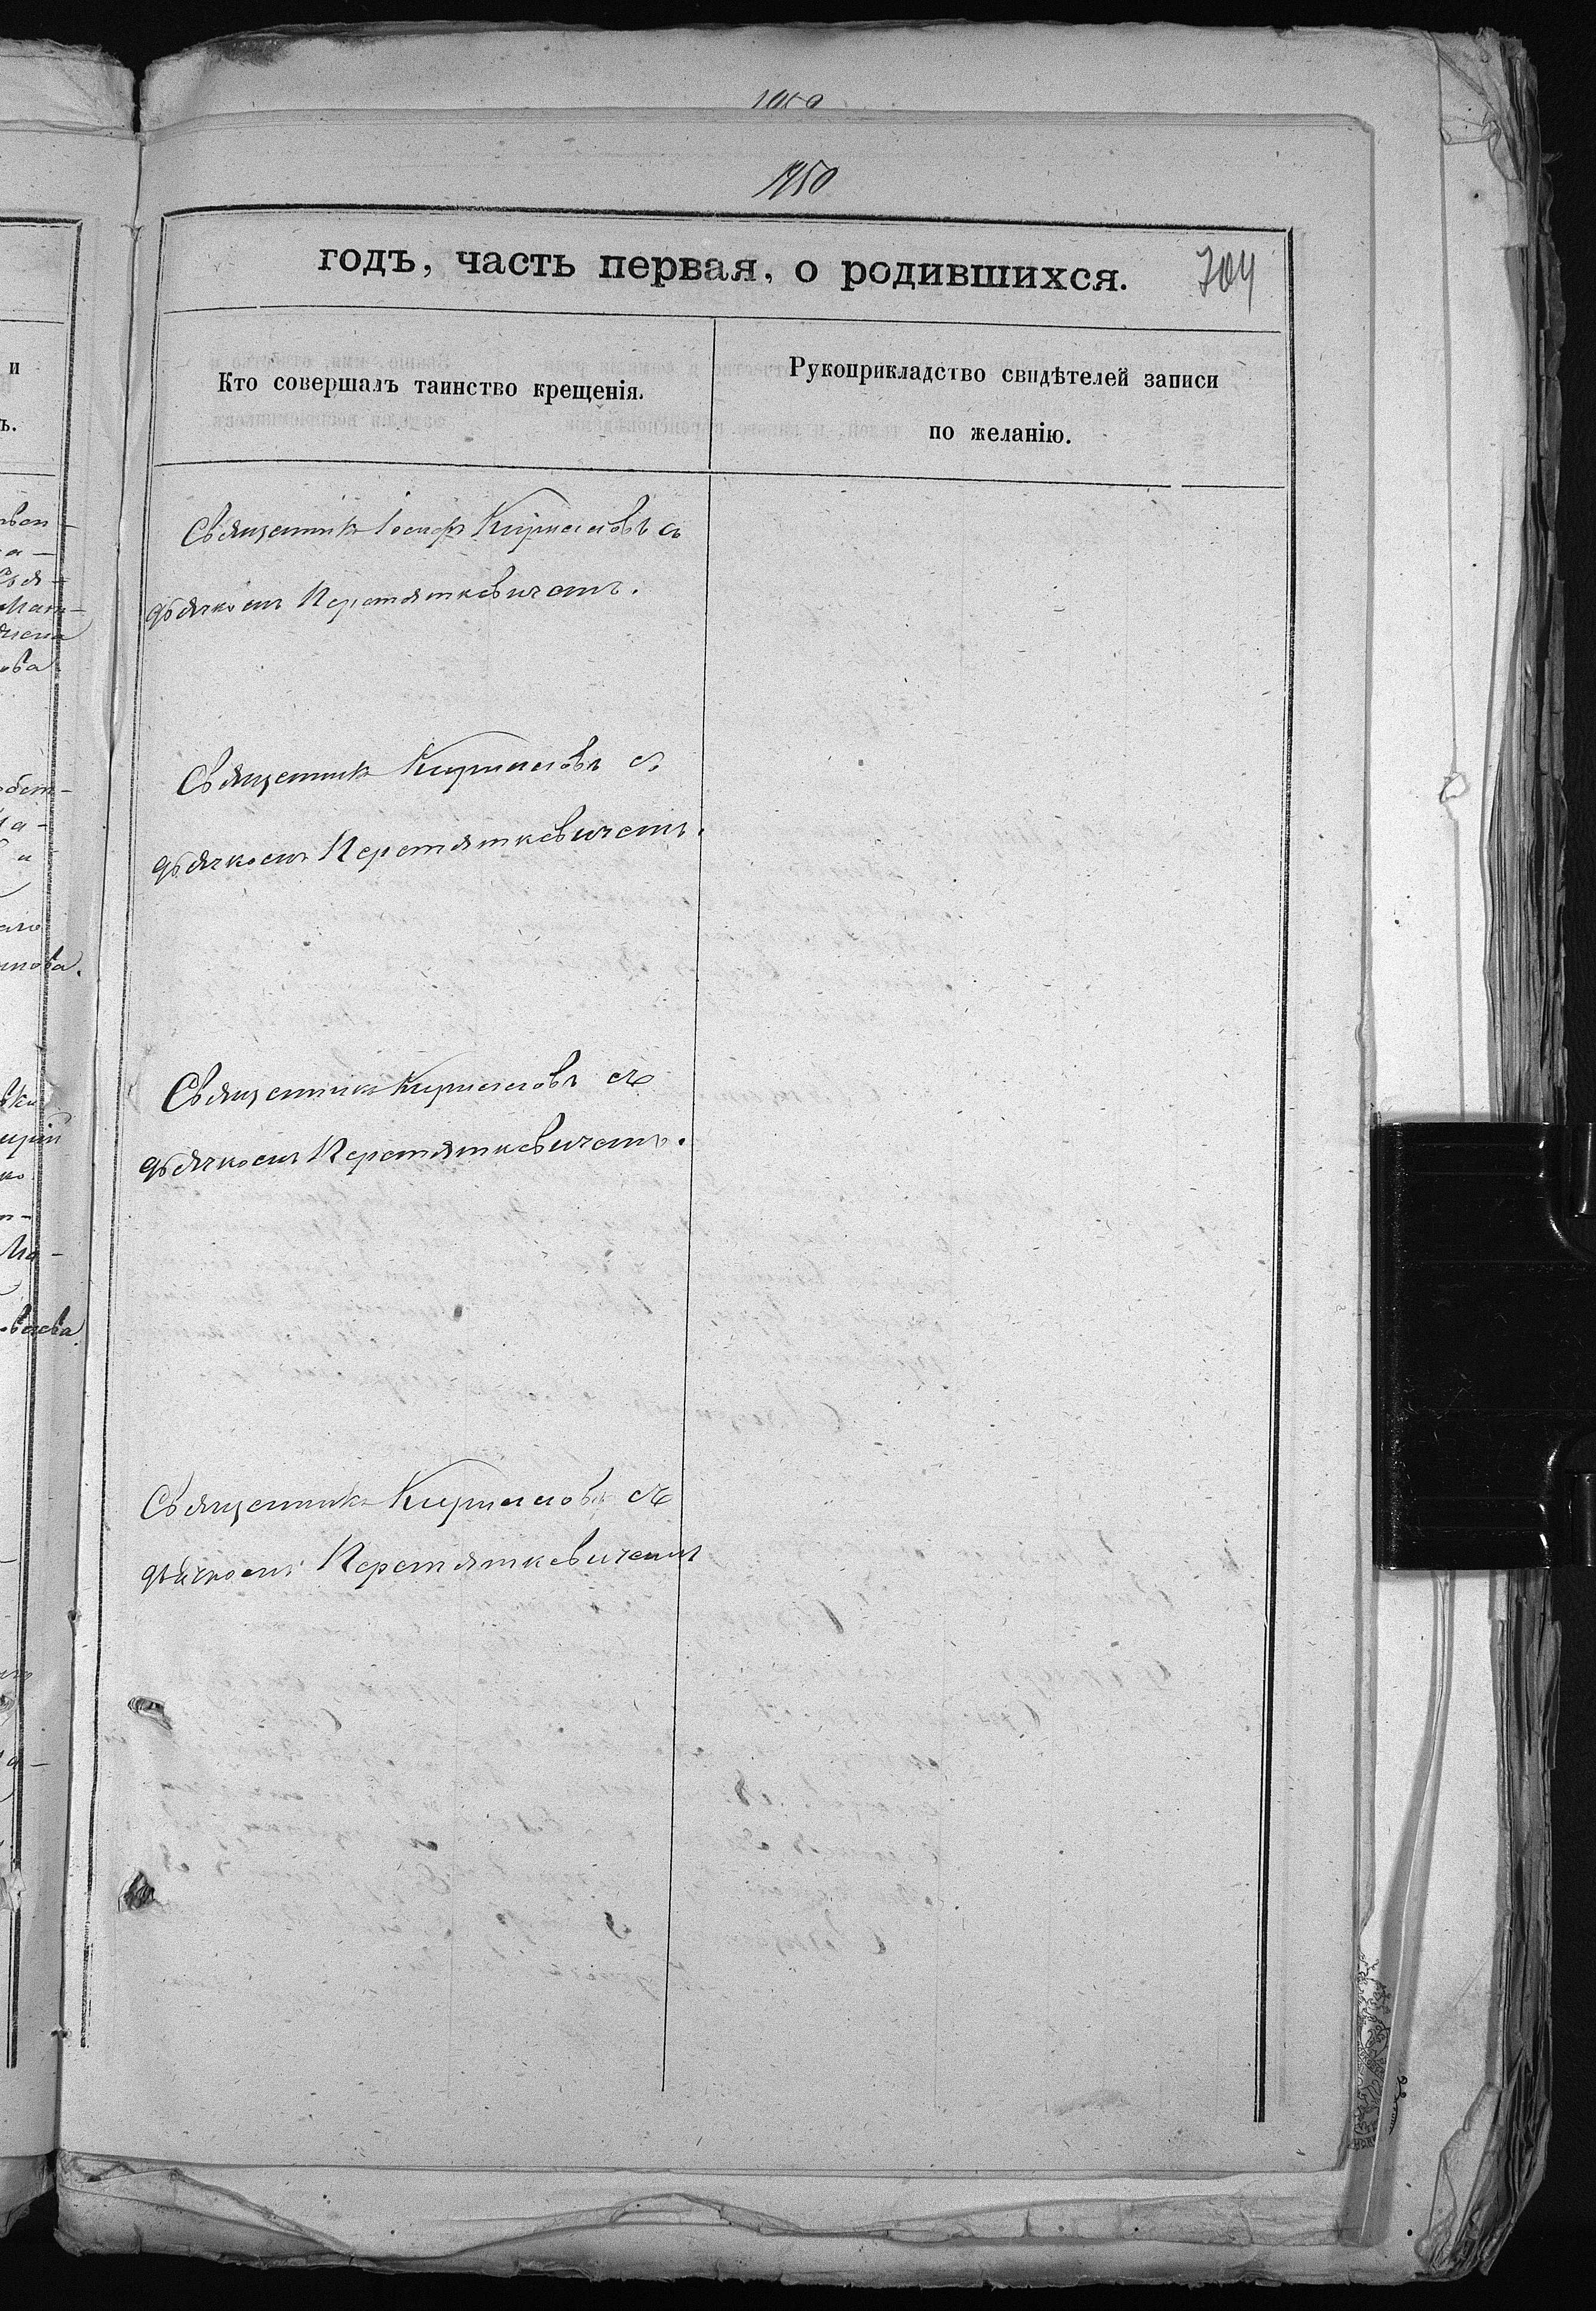 1050
годъ, часть первая, о родившихся. 704
Кто совершалъ таинство крещенія.
Рукоприкладство свидѣтелей записи
по желанію.
Священникъ Іосифъ Кирилловъ съ
дьячкомъПеретяткевичемъ.
Священникъ Кирилловъ съ
дьячкомъ Перетяткевичемъ.
Священникъ Кирилловъ съ
дьячкомъ Перетяткевичемъ.
Священникъ Кирилловъ съ
дьячкомъ Перетяткевичемъ